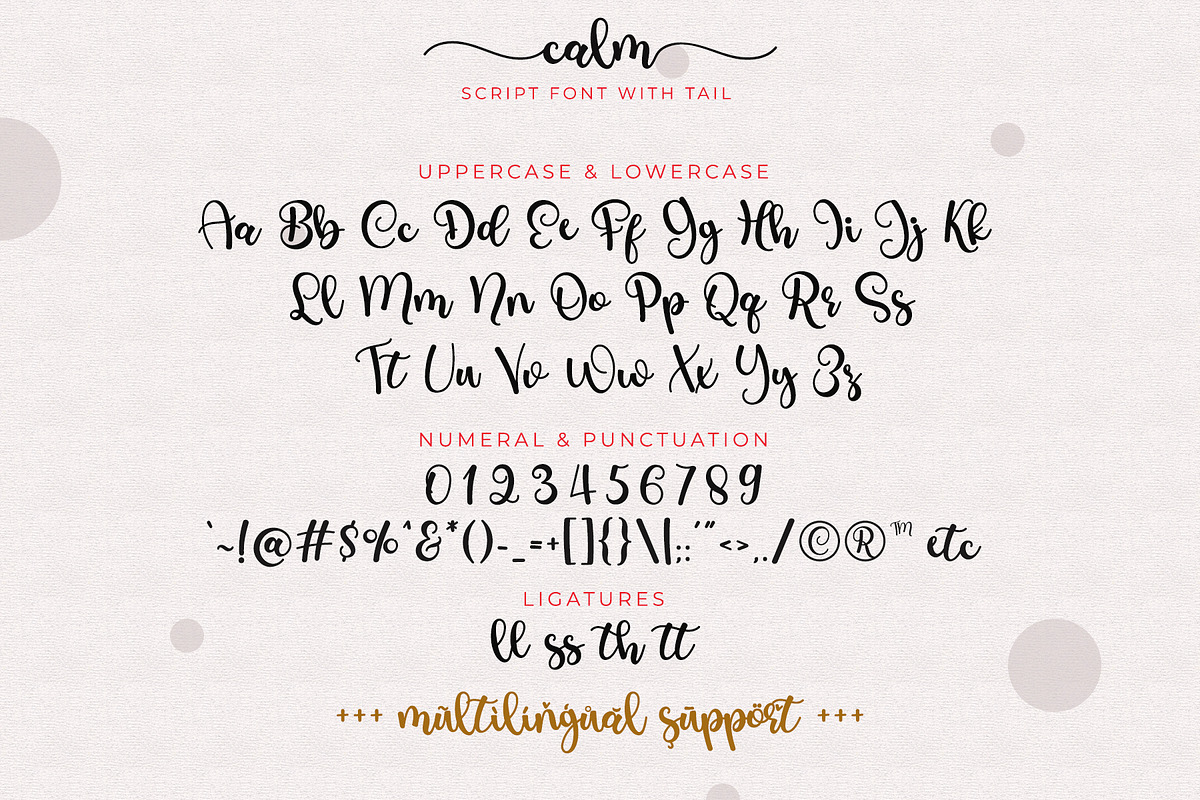 calm
SCRIPT FONT WITH TAIL
UPPERCASE & LOWERCASE
Aa Bb Cc Dd Ee Ff Gg Hh Ii Jj Kk
Ll Mm Nn Oo Pp Qq Rr Ss
Tt Uu Vv Ww Xx Yy Zz
NUMERAL & PUNCTUATION
0 1 2 3 4 5 6 7 8 9
`~!@#$%^&*()-_=+[]{}\|;:'"<>,./©®™ etc
LIGATURES
ll ss th tt
+++ mũltìlíňġůăl şūppöřt +++